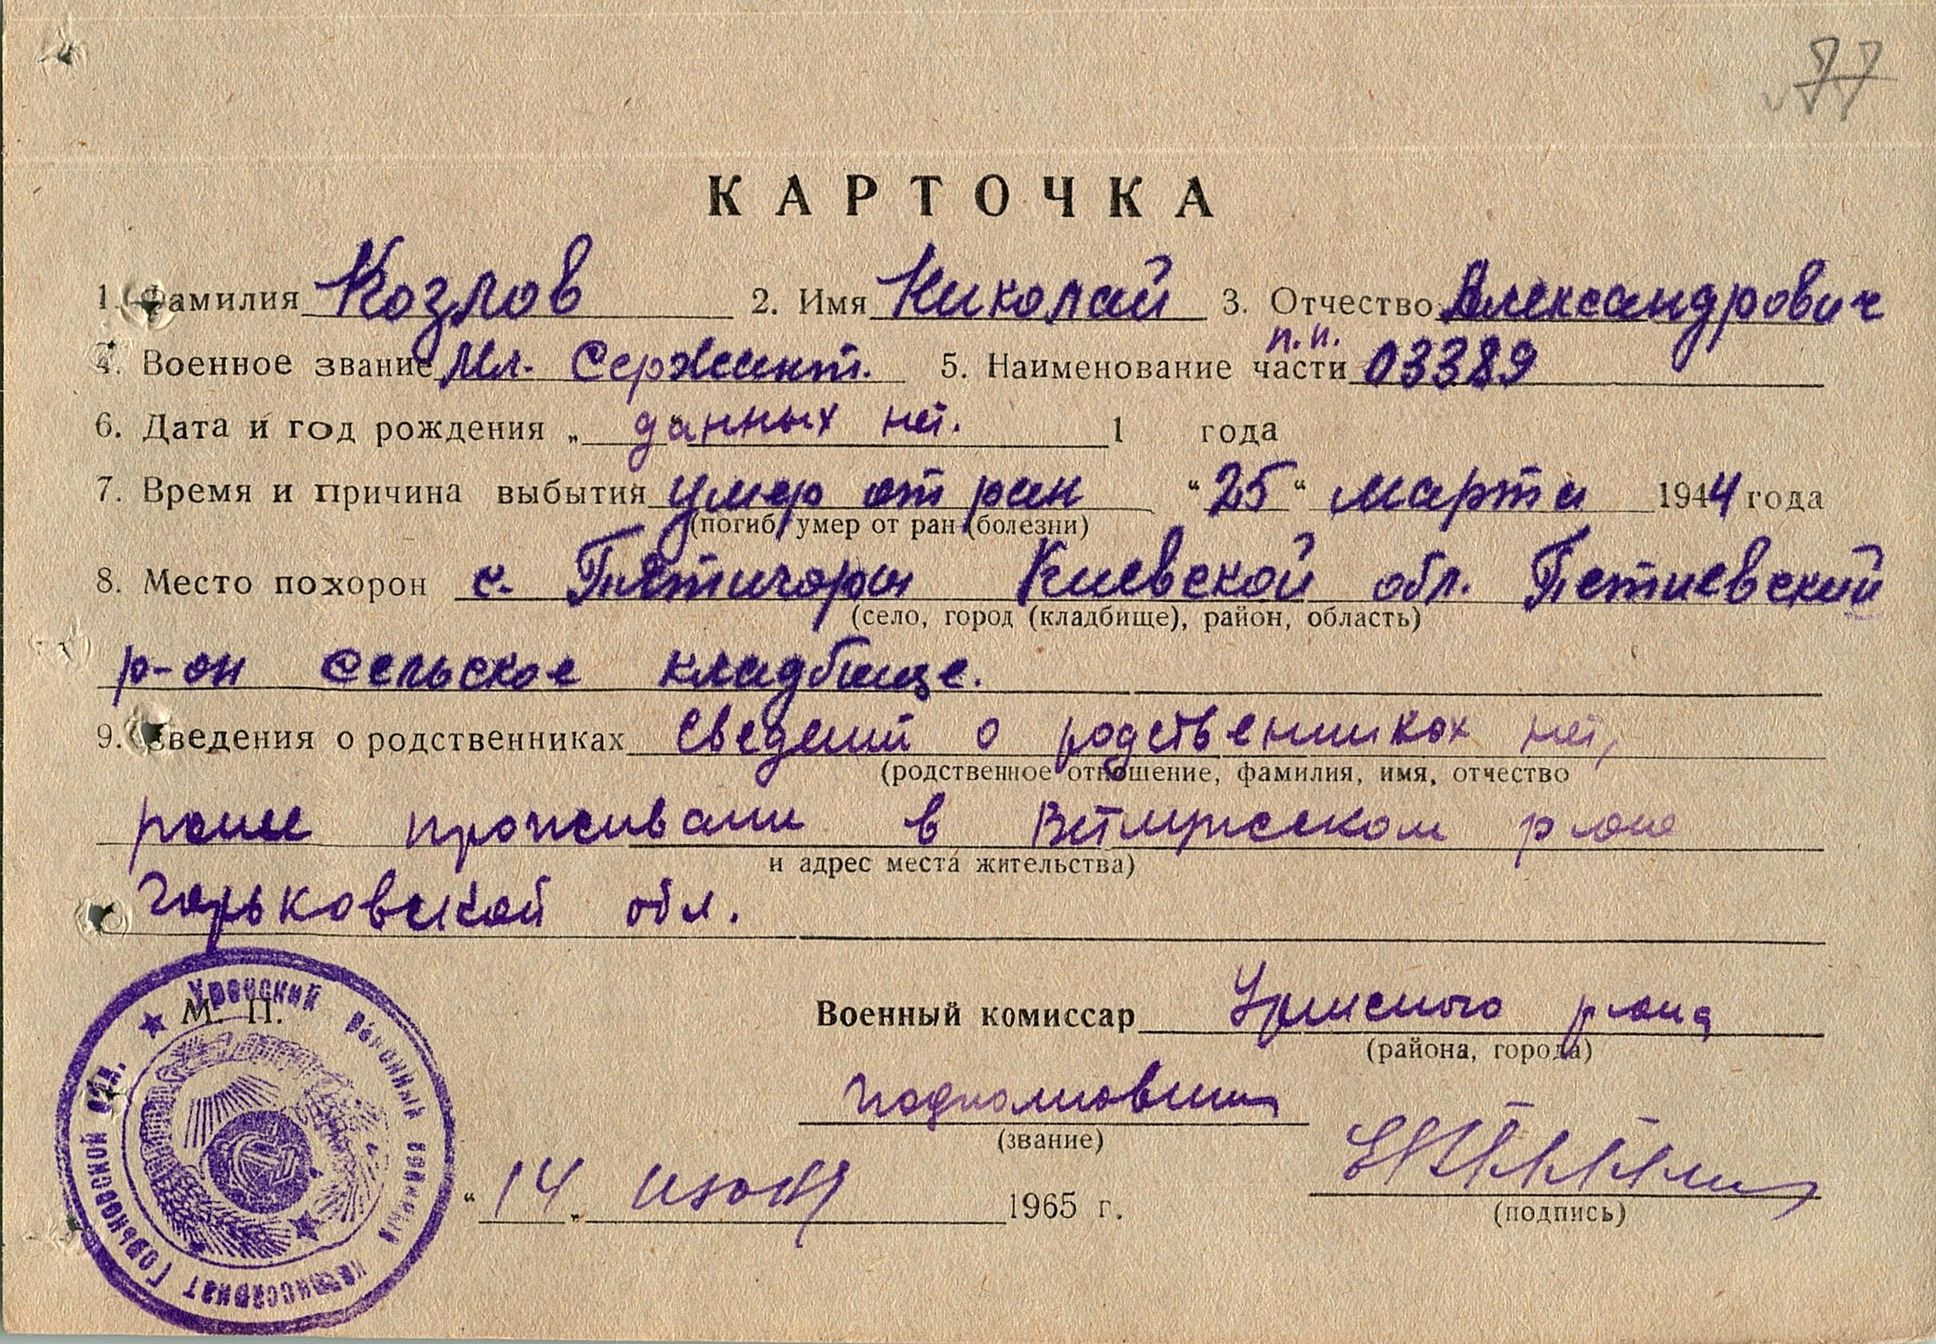 77
КАРТОЧКА
1. Фамилия Козлов 2. Имя Николай 3. Отчество Александрович
п.п.
4. Военное звание Мл. Сержант. 5. Наименование части 03389
6. Дата и год рождения „ данных нет. 1 года
7. Время и причина выбытия умер от ран "25" марта 1944 года
(погиб, умер от ран (болезни)
8. Место похорон с. Пятигоры Киевской обл. Тетиевский
(село, город (кладбище), район, область)
р-он сельское кладбище.
9. Сведения о родственниках Сведений о родственниках нет,
(родственное отношение, фамилия, имя, отчество
ранее проживали в Ветлужском р-оне
и адрес места жительства)
Горьковской обл.
М. П.
Уренский районный военный комиссариат Горьковской обл.
Военный комиссар Уренского р-она
(района, города)
подполковник
(звание)
"14 „ июня 1965 г.
(подпись)